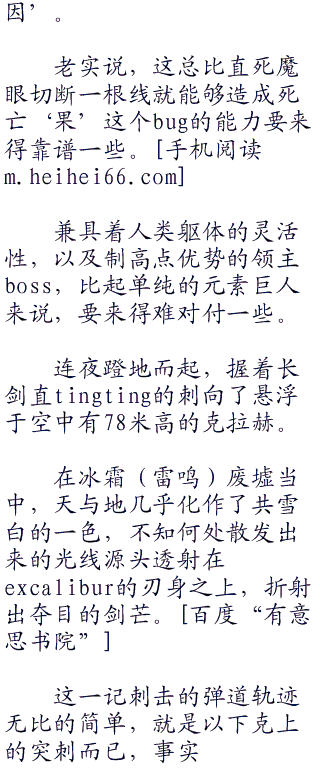 因’。
老实说，这总比直死魔
眼切断一根线就能够造成死
亡‘果’这个bug的能力要来
得靠谱一些。[手机阅读
m.heihei66.com]
兼具着人类躯体的灵活
性，以及制高点优势的领主
boss，比起单纯的元素巨人
来说，要来得难对付一些。
连夜蹬地而起，握着长
剑直tingting的刺向了悬浮
于空中有78米高的克拉赫。
在冰霜（雷鸣）废墟当
中，天与地几乎化作了共雪
白的一色，不知何处散发出
来的光线源头透射在
excalibur的刃身之上，折射
出夺目的剑芒。[百度“有意
思书院”]
这一记刺击的弹道轨迹
无比的简单，就是以下克上
的突刺而已，事实